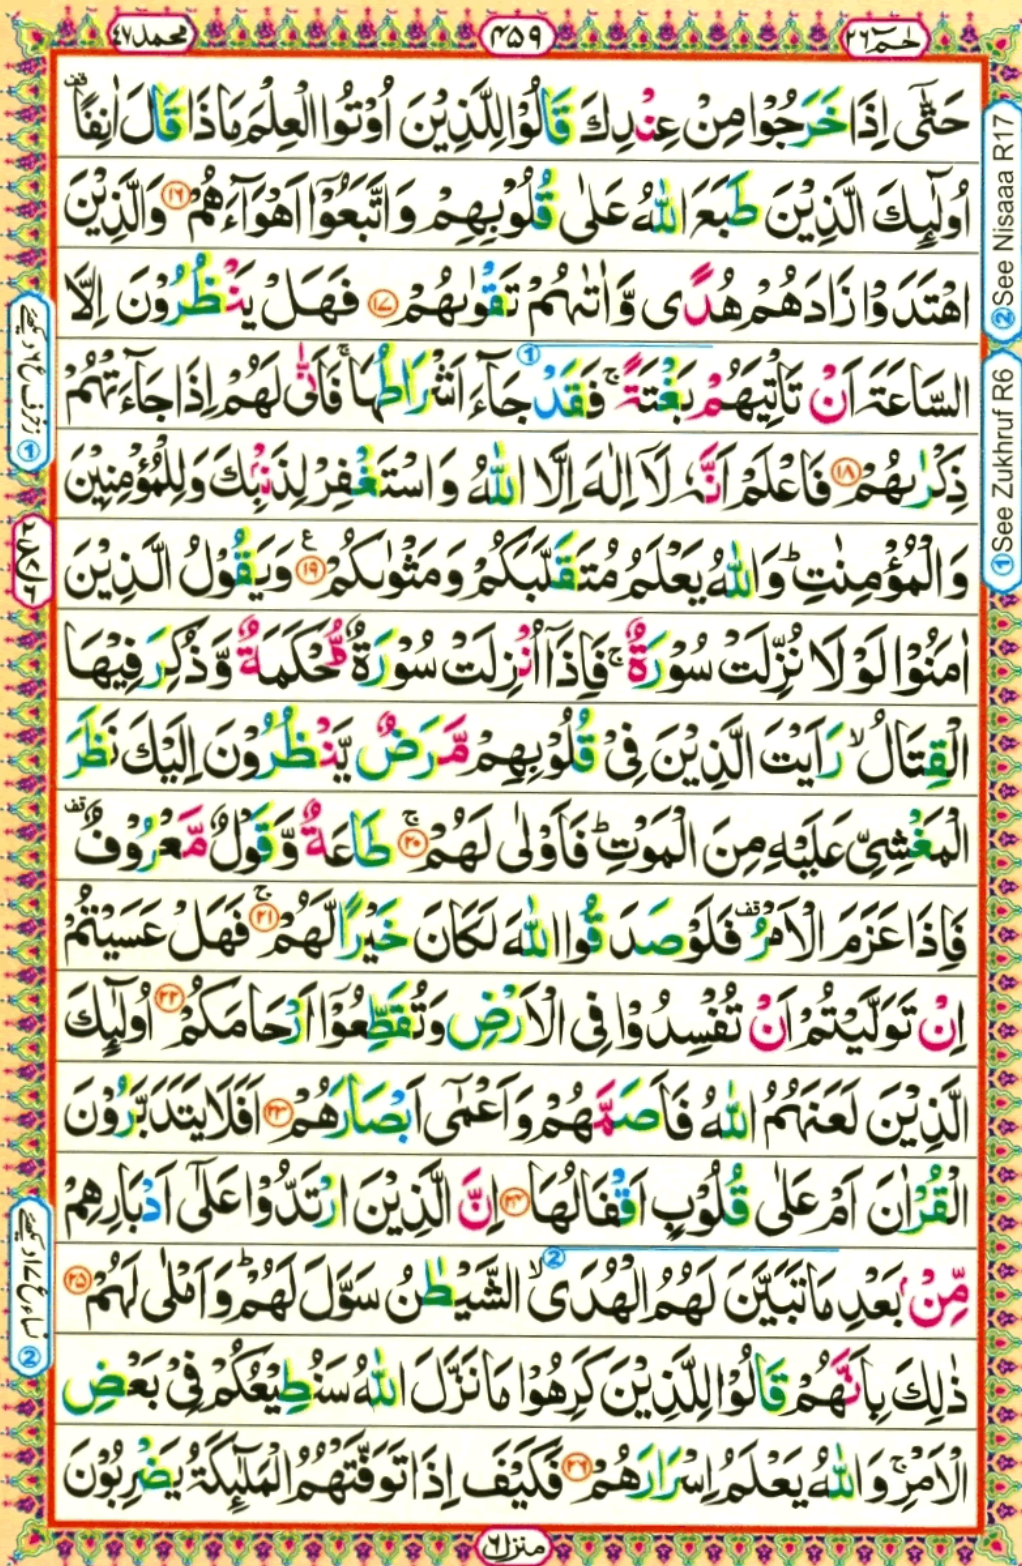 حٰمٓ ٢٦
٤٥٩
محمد ٤٧
حَتّٰۤى اِذَا خَرَجُوْا مِنْ عِنْدِكَ قَالُوْا لِلَّذِيْنَ اُوْتُوا الْعِلْمَ مَاذَا قَالَ اٰنِفًا ۫
اُولٰٓئِكَ الَّذِيْنَ طَبَعَ اللّٰهُ عَلٰى قُلُوْبِهِمْ وَاتَّبَعُوْۤا اَهْوَآءَهُمْ ﴿۱۶﴾ وَالَّذِيْنَ
اهْتَدَوْا زَادَهُمْ هُدًى وَّاٰتٰىهُمْ تَقْوٰىهُمْ ﴿۱۷﴾ فَهَلْ يَنْظُرُوْنَ اِلَّا
السَّاعَةَ اَنْ تَاْتِيَهُمْ بَغْتَةً ۚ فَقَدْ جَآءَ اَشْرَاطُهَا ۚ فَاَنّٰى لَهُمْ اِذَا جَآءَتْهُمْ
ذِكْرٰىهُمْ ﴿۱۸﴾ فَاعْلَمْ اَنَّهٗ لَاۤ اِلٰهَ اِلَّا اللّٰهُ وَاسْتَغْفِرْ لِذَنْۢبِكَ وَلِلْمُؤْمِنِيْنَ
وَالْمُؤْمِنٰتِ ؕ وَاللّٰهُ يَعْلَمُ مُتَقَلَّبَكُمْ وَمَثْوٰىكُمْ ﴿۱۹﴾ ع وَيَقُوْلُ الَّذِيْنَ
اٰمَنُوْا لَوْلَا نُزِّلَتْ سُوْرَةٌ ۚ فَاِذَاۤ اُنْزِلَتْ سُوْرَةٌ مُّحْكَمَةٌ وَّذُكِرَ فِيْهَا
الْقِتَالُ ۙ رَاَيْتَ الَّذِيْنَ فِيْ قُلُوْبِهِمْ مَّرَضٌ يَّنْظُرُوْنَ اِلَيْكَ نَظَرَ
الْمَغْشِيِّ عَلَيْهِ مِنَ الْمَوْتِ ؕ فَاَوْلٰى لَهُمْ ﴿۲۰﴾ۚ طَاعَةٌ وَّقَوْلٌ مَّعْرُوْفٌ ۫
فَاِذَا عَزَمَ الْاَمْرُ ۫ فَلَوْ صَدَقُوا اللّٰهَ لَكَانَ خَيْرًا لَّهُمْ ﴿۲۱﴾ۚ فَهَلْ عَسَيْتُمْ
اِنْ تَوَلَّيْتُمْ اَنْ تُفْسِدُوْا فِي الْاَرْضِ وَتُقَطِّعُوْۤا اَرْحَامَكُمْ ﴿۲۲﴾ اُولٰٓئِكَ
الَّذِيْنَ لَعَنَهُمُ اللّٰهُ فَاَصَمَّهُمْ وَاَعْمٰۤى اَبْصَارَهُمْ ﴿۲۳﴾ اَفَلَا يَتَدَبَّرُوْنَ
الْقُرْاٰنَ اَمْ عَلٰى قُلُوْبٍ اَقْفَالُهَا ﴿۲۴﴾ اِنَّ الَّذِيْنَ ارْتَدُّوْا عَلٰۤى اَدْبَارِهِمْ
مِّنْۢ بَعْدِ مَا تَبَيَّنَ لَهُمُ الْهُدَى ۙ الشَّيْطٰنُ سَوَّلَ لَهُمْ ؕ وَاَمْلٰى لَهُمْ ﴿۲۵﴾
ذٰلِكَ بِاَنَّهُمْ قَالُوْا لِلَّذِيْنَ كَرِهُوْا مَا نَزَّلَ اللّٰهُ سَنُطِيْعُكُمْ فِيْ بَعْضِ
الْاَمْرِ ۚ وَاللّٰهُ يَعْلَمُ اِسْرَارَهُمْ ﴿۲۶﴾ فَكَيْفَ اِذَا تَوَفَّتْهُمُ الْمَلٰٓئِكَةُ يَضْرِبُوْنَ
منزل ٦
② See Nisaaa R17
① See Zukhruf R6